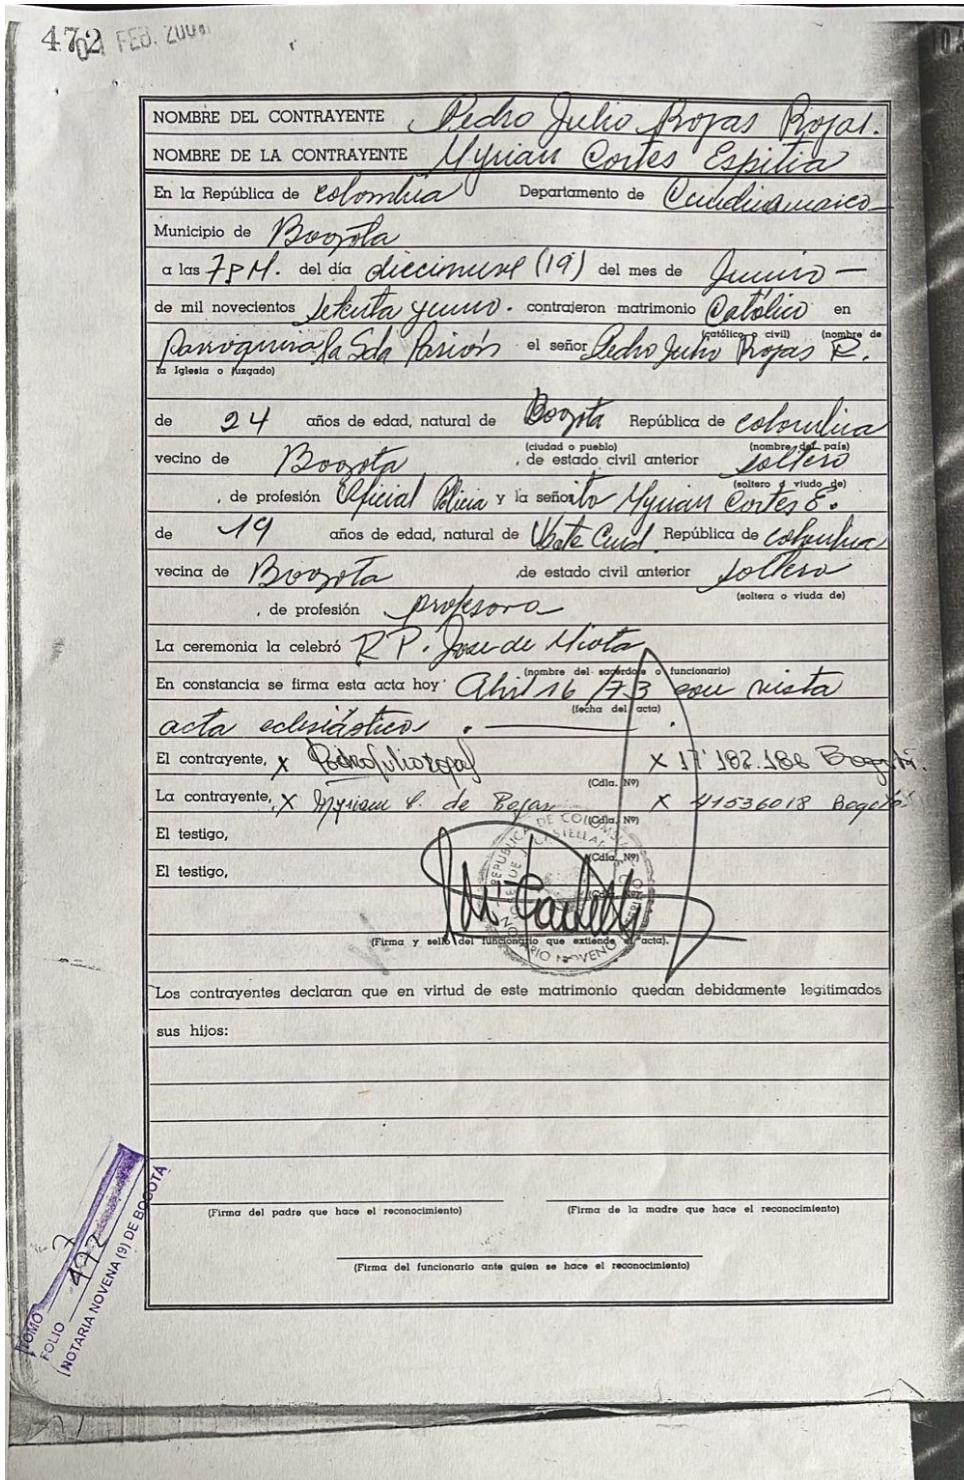 472
FEB. 200
NOMBRE DEL CONTRAYENTE Pedro Julio Rojas Rojas.
NOMBRE DE LA CONTRAYENTE Myrian Cortes Espitia
En la República de Colombia Departamento de Cundinamarca
Municipio de Bogota
a las 7 P M. del día diecinueve (19) del mes de Junio —
de mil novecientos setenta y uno. contrajeron matrimonio Católico en
(católico o civil) (nombre de
Parroquia la Sda Pasión el señor Pedro Julio Rojas R.
la Iglesia o juzgado)
de 24 años de edad, natural de Bogota República de Colombia
(ciudad o pueblo) (nombre del país)
vecino de Bogota, de estado civil anterior soltero
(soltero o viudo de)
, de profesión Oficial Policia y la señorita Myrian Cortes E.
de 19 años de edad, natural de Ubate Cund. República de Colombia
vecina de Bogota ,de estado civil anterior soltera
(soltera o viuda de)
, de profesión profesora
La ceremonia la celebró R P. Jose de
(nombre del sacerdote o funcionario)
En constancia se firma esta acta hoy Abril 16 /73 con vista
(fecha del acta)
acta eclesiástica. ——— .
El contrayente, X Pedro Julio rojas X 17'182.186 Bogotá.
(Cdla. Nº)
La contrayente, X Myriam C. de Rojas X 41536018 Bogotá
(Cdla. Nº)
El testigo,
(Cdla. Nº)
El testigo,
REPUBLICA DE COLOMBIA
NOTARIO NOVENO
(Firma y sello del funcionario que extiende el acta).
Los contrayentes declaran que en virtud de este matrimonio quedan debidamente legitimados
sus hijos:
(Firma del padre que hace el reconocimiento) (Firma de la madre que hace el reconocimiento)
(Firma del funcionario ante quien se hace el reconocimiento)
TOMO 7
FOLIO 472
(NOTARIA NOVENA (9) DE BOGOTÁ